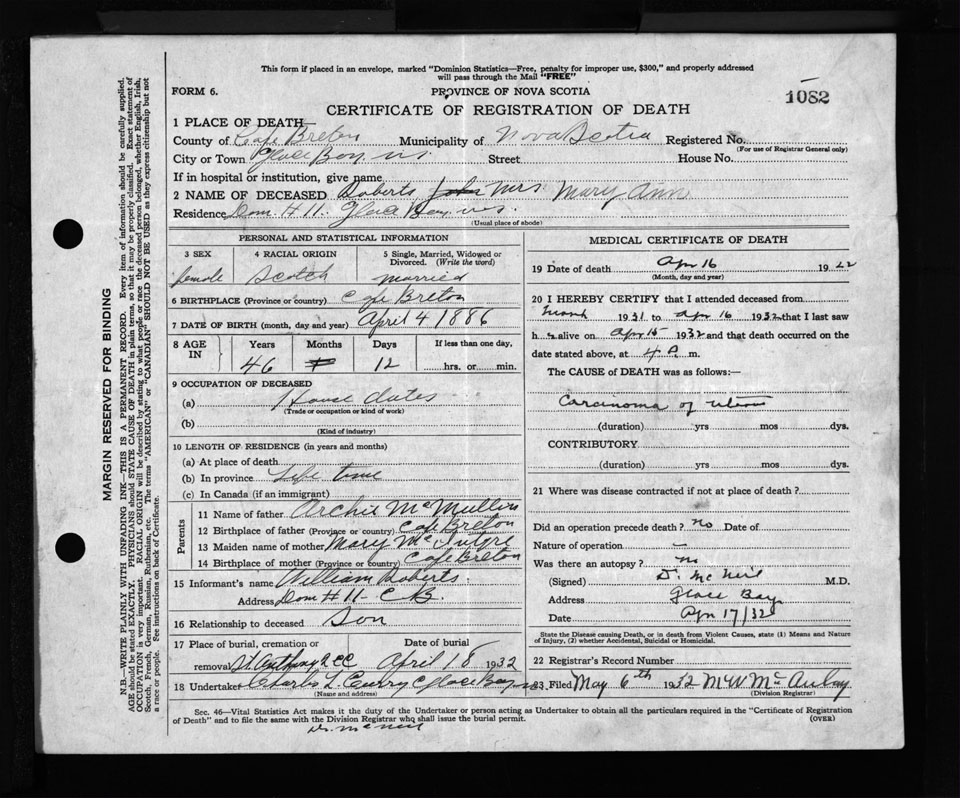 This form if placed in an envelope, marked "Dominion Statistics—Free, penalty for improper use, $300," and properly addressed
will pass through the Mail "FREE"
FORM 6.
PROVINCE OF NOVA SCOTIA
1082
CERTIFICATE OF REGISTRATION OF DEATH
1 PLACE OF DEATH
County of Cape Breton Municipality of Nova Scotia Registered No.
(For use of Registrar General only)
City or Town Glace Bay N.S. Street House No.
If in hospital or institution, give name
2 NAME OF DECEASED Roberts John Mrs Mary Ann
Residence Dom. #11. Glace Bay, N.S.
(Usual place of abode)
PERSONAL AND STATISTICAL INFORMATION
3 SEX
female
4 RACIAL ORIGIN
Scotch
5 Single, Married, Widowed or
Divorced. (Write the word)
married
6 BIRTHPLACE (Province or country) Cape Breton
7 DATE OF BIRTH (month, day and year) April 4 1886
8 AGE IN
Years Months Days If less than one day,
46 12 hrs. or min.
9 OCCUPATION OF DECEASED
(a) House duties
(Trade or occupation or kind of work)
(b)
(Kind of industry)
10 LENGTH OF RESIDENCE (in years and months)
(a) At place of death
(b) In province Life time
(c) In Canada (if an immigrant)
Parents
11 Name of father Archie McMullin
12 Birthplace of father (Province or country) Cape Breton
13 Maiden name of mother Mary McIntyre
14 Birthplace of mother (Province or country) Cape Breton
15 Informant's name William Roberts.
Address Dom #11 - C.B.
16 Relationship to deceased Son
17 Place of burial, cremation or Date of burial
removal St. Anthony's CC April 18 1932
18 Undertaker Charles L. Curry Glace Bay N.S.
(Name and address)
MEDICAL CERTIFICATE OF DEATH
19 Date of death Apr 16 1922
(Month, day and year)
20 I HEREBY CERTIFY that I attended deceased from
March 1931 to Apr 16 1932 that I last saw
h alive on Apr 15 1932 and that death occurred on the
date stated above, at 4 P. m.
The CAUSE of DEATH was as follows:—
Carcinoma of uterus
(duration) yrs mos dys.
CONTRIBUTORY.
(duration) yrs mos dys.
21 Where was disease contracted if not at place of death?
Did an operation precede death? no Date of
Nature of operation —
Was there an autopsy? no
(Signed) D. McNeil M.D.
Address Glace Bay
Date Apr 17/32
State the Disease causing Death, or in death from Violent Causes, state (1) Means and Nature
of Injury, (2) whether Accidental, Suicidal or Homicidal.
22 Registrar's Record Number
23 Filed May 6th 1932 McAulay
(Division Registrar)
Sec. 46—Vital Statistics Act makes it the duty of the Undertaker or person acting as Undertaker to obtain all the particulars required in the "Certificate of Registration
of Death" and to file the same with the Division Registrar who shall issue the burial permit.
(OVER)
Dr. McNeil
MARGIN RESERVED FOR BINDING
N.B.—WRITE PLAINLY WITH UNFADING INK—THIS IS A PERMANENT RECORD. Every item of information should be carefully supplied.
AGE should be stated EXACTLY. PHYSICIANS should STATE CAUSE OF DEATH in plain terms, so that it may be properly classified. Exact statement of
OCCUPATION is very important. RACIAL ORIGIN will be described by stating to what people or race the deceased person belonged, whether English, Irish,
Scotch, French, German, Russian, Ruthenian, etc. The terms "AMERICAN" or "CANADIAN" SHOULD NOT BE USED as they express citizenship but not
a race or people. See instructions on back of Certificate.